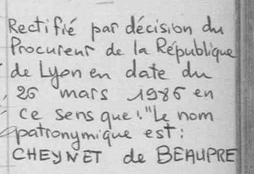 Rectifié par décision du
Procureur de la République
de Lyon en date du
25 mars 1986 en
ce sens que : "Le nom
patronymique est :
CHEYNET de BEAUPRE